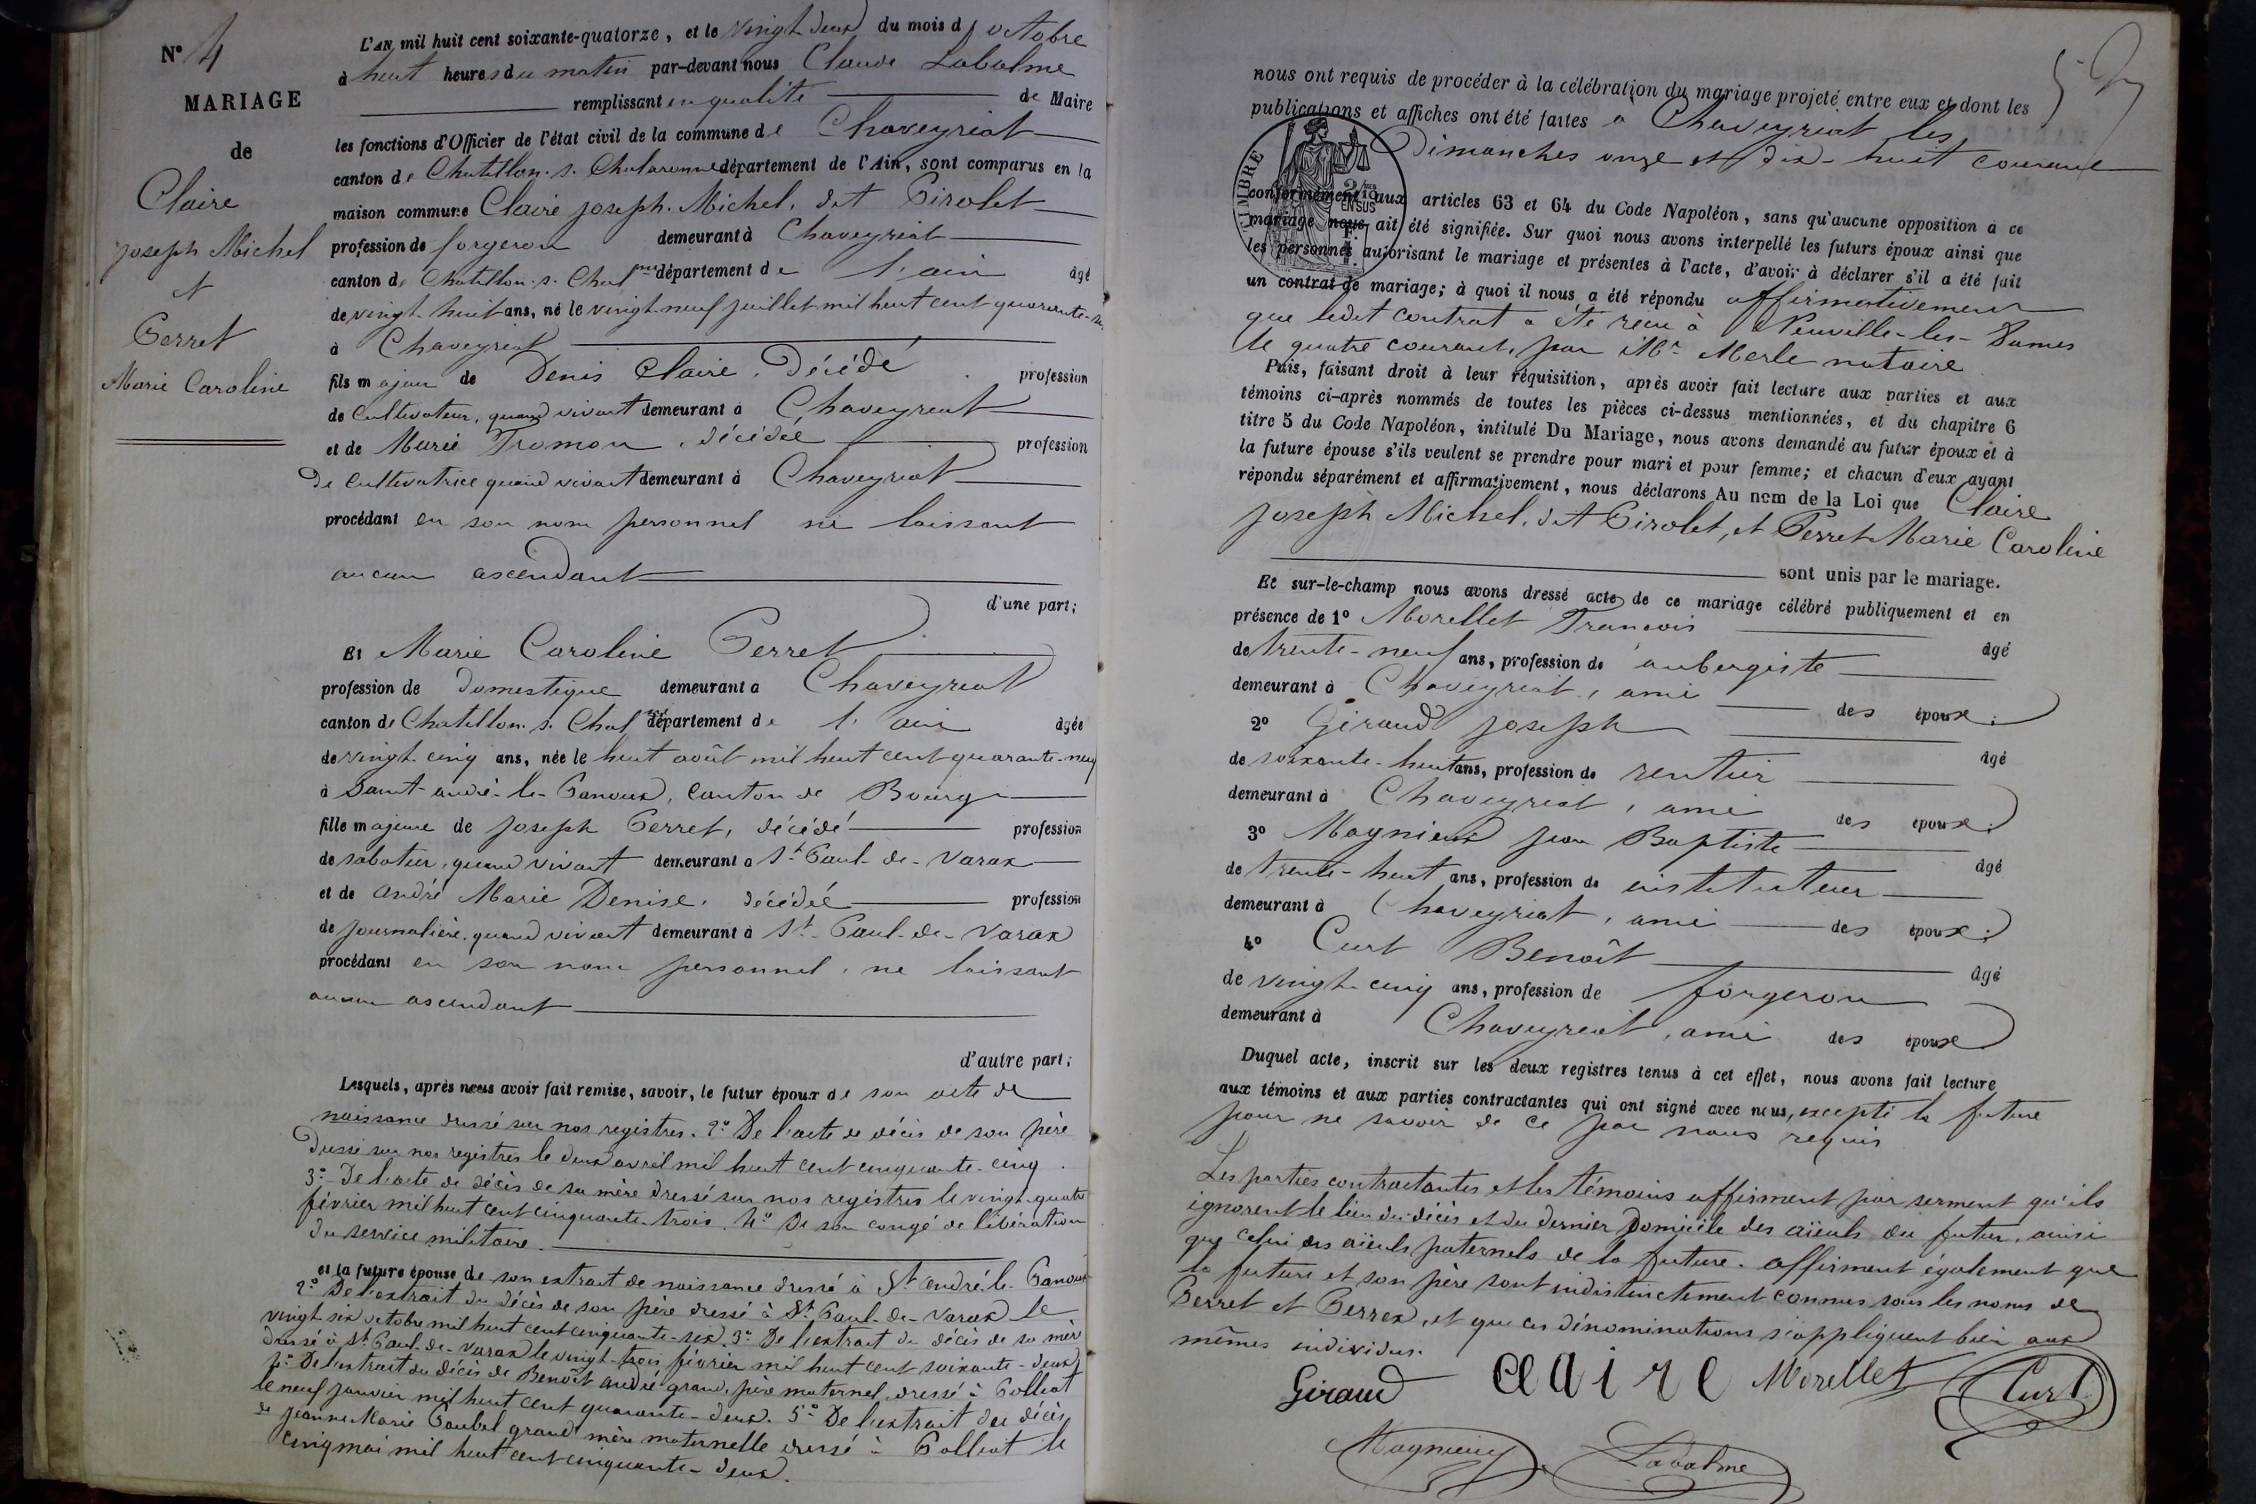 N° 4
MARIAGE
de
Claire
Joseph Michel
et
Perret
Marie Caroline
L'AN mil huit cent soixante-quatorze, et le vingt deux du mois d'octobre
à huit heures du matin par-devant nous Claude Labalme
remplissant en qualité de Maire
les fonctions d'Officier de l'état civil de la commune de Chaveyriat
canton de Chatillon-s-Chalaronne département de l'Ain, sont comparus en la
maison commune Claire Joseph-Michel, dit Pirolet
profession de forgeron demeurant à Chaveyriat
canton de Chatillon-s-Chal département de l'ain âgé
de vingt-huit ans, né le vingt-neuf juillet mil huit cent quarante-
à Chaveyriat
fils majeur de Denis Claire, décédé profession
de cultivateur, quand vivait demeurant à Chaveyriat
et de Marie Tromon, décédée profession
de cultivatrice quand vivait demeurant à Chaveyriat
procédant en son nom personnel ne laissant
aucun ascendant
d'une part;
Et Marie Caroline Perret
profession de domestique demeurant à Chaveyriat
canton de Chatillon-s-Chal département de l'ain âgée
de vingt-cinq ans, née le huit août mil huit cent quarante-neuf
à Saint-andré-le-Panoux, canton de Bourg
fille majeure de Joseph Perret, décédé profession
de sabotier, quand vivait demeurant à St-Paul-de-Varax
et de andré Marie Denise, décédée profession
de journalière, quand vivait demeurant à St-Paul-de-Varax
procédant en son nom personnel, ne laissant
aucun ascendant
d'autre part;
Lesquels, après nous avoir fait remise, savoir, le futur époux de son acte de
naissance dressé sur nos registres. 2° De l'acte de décès de son père
dressé sur nos registres le deux avril mil huit cent cinquante-cinq.
3° De l'acte de décès de sa mère dressé sur nos registres le vingt-quatre
février mil huit cent cinquante-trois. 4° De son congé de libération
du service militaire.
et la future épouse de son extrait de naissance dressé à St andré-le-Panoux
2° De l'extrait du décès de son père dressé à St Paul-de-Varax le
vingt-six octobre mil huit cent cinquante-six. 3° De l'extrait du décès de sa mère
dressé à St Paul-de-Varax le vingt-trois février mil huit cent soixante-deux
4° De l'extrait du décès de Benoît andré grand-père maternel, dressé à Polliat
le neuf janvier mil huit cent quarante-deux. 5° De l'extrait du décès
de Jeanne Marie Paubel grand'mère maternelle dressé à Polliat le
cinq mai mil huit cent cinquante-deux.
nous ont requis de procéder à la célébration du mariage projeté entre eux et dont les
publications et affiches ont été faites à Chaveyriat les
Dimanches onze et dix-huit courant
TIMBRE
2/10
EN SUS
conformément aux articles 63 et 64 du Code Napoléon, sans qu'aucune opposition à ce
mariage nous ait été signifiée. Sur quoi nous avons interpellé les futurs époux ainsi que
les personnes autorisant le mariage et présentes à l'acte, d'avoir à déclarer s'il a été fait
un contrat de mariage; à quoi il nous a été répondu affirmativement
que ledit contrat a été reçu à Neuville-les-Dames
le quatre courant, par Mr Merle notaire
Puis, faisant droit à leur réquisition, après avoir fait lecture aux parties et aux
témoins ci-après nommés de toutes les pièces ci-dessus mentionnées, et du chapitre 6
titre 5 du Code Napoléon, intitulé Du Mariage, nous avons demandé au futur époux et à
la future épouse s'ils veulent se prendre pour mari et pour femme; et chacun d'eux ayant
répondu séparément et affirmativement, nous déclarons Au nom de la Loi que Claire
Joseph Michel, dit Pirolet, et Perret Marie Caroline
sont unis par le mariage.
Et sur-le-champ nous avons dressé acte de ce mariage célébré publiquement et en
présence de 1° Morellet François
de trente-neuf ans, profession de aubergiste âgé
demeurant à Chaveyriat, ami des époux;
2° Giraud Joseph
de soixante-huit ans, profession de rentier âgé
demeurant à Chaveyriat, ami des époux;
3° Magnieux Jean Baptiste
de trente-huit ans, profession de instituteur âgé
demeurant à Chaveyriat, ami des époux;
4° Curt Benoît
de vingt-cinq ans, profession de forgeron âgé
demeurant à Chaveyriat, ami des époux
Duquel acte, inscrit sur les deux registres tenus à cet effet, nous avons fait lecture
aux témoins et aux parties contractantes qui ont signé avec nous, excepté la future
pour ne savoir de ce par nous requis
Les parties contractantes et les témoins affirment par serment qu'ils
ignorent le lieu du décès et du dernier domicile des aïeuls du futur, ainsi
que celui des aïeuls paternels de la future. affirment également que
la future et son père sont indistinctement connus sous les noms de
Perret et Perrex, et que ces dénominations s'appliquent bien aux
mêmes individus.
Giraud claire Morellet Curt
Magnieux Labalme